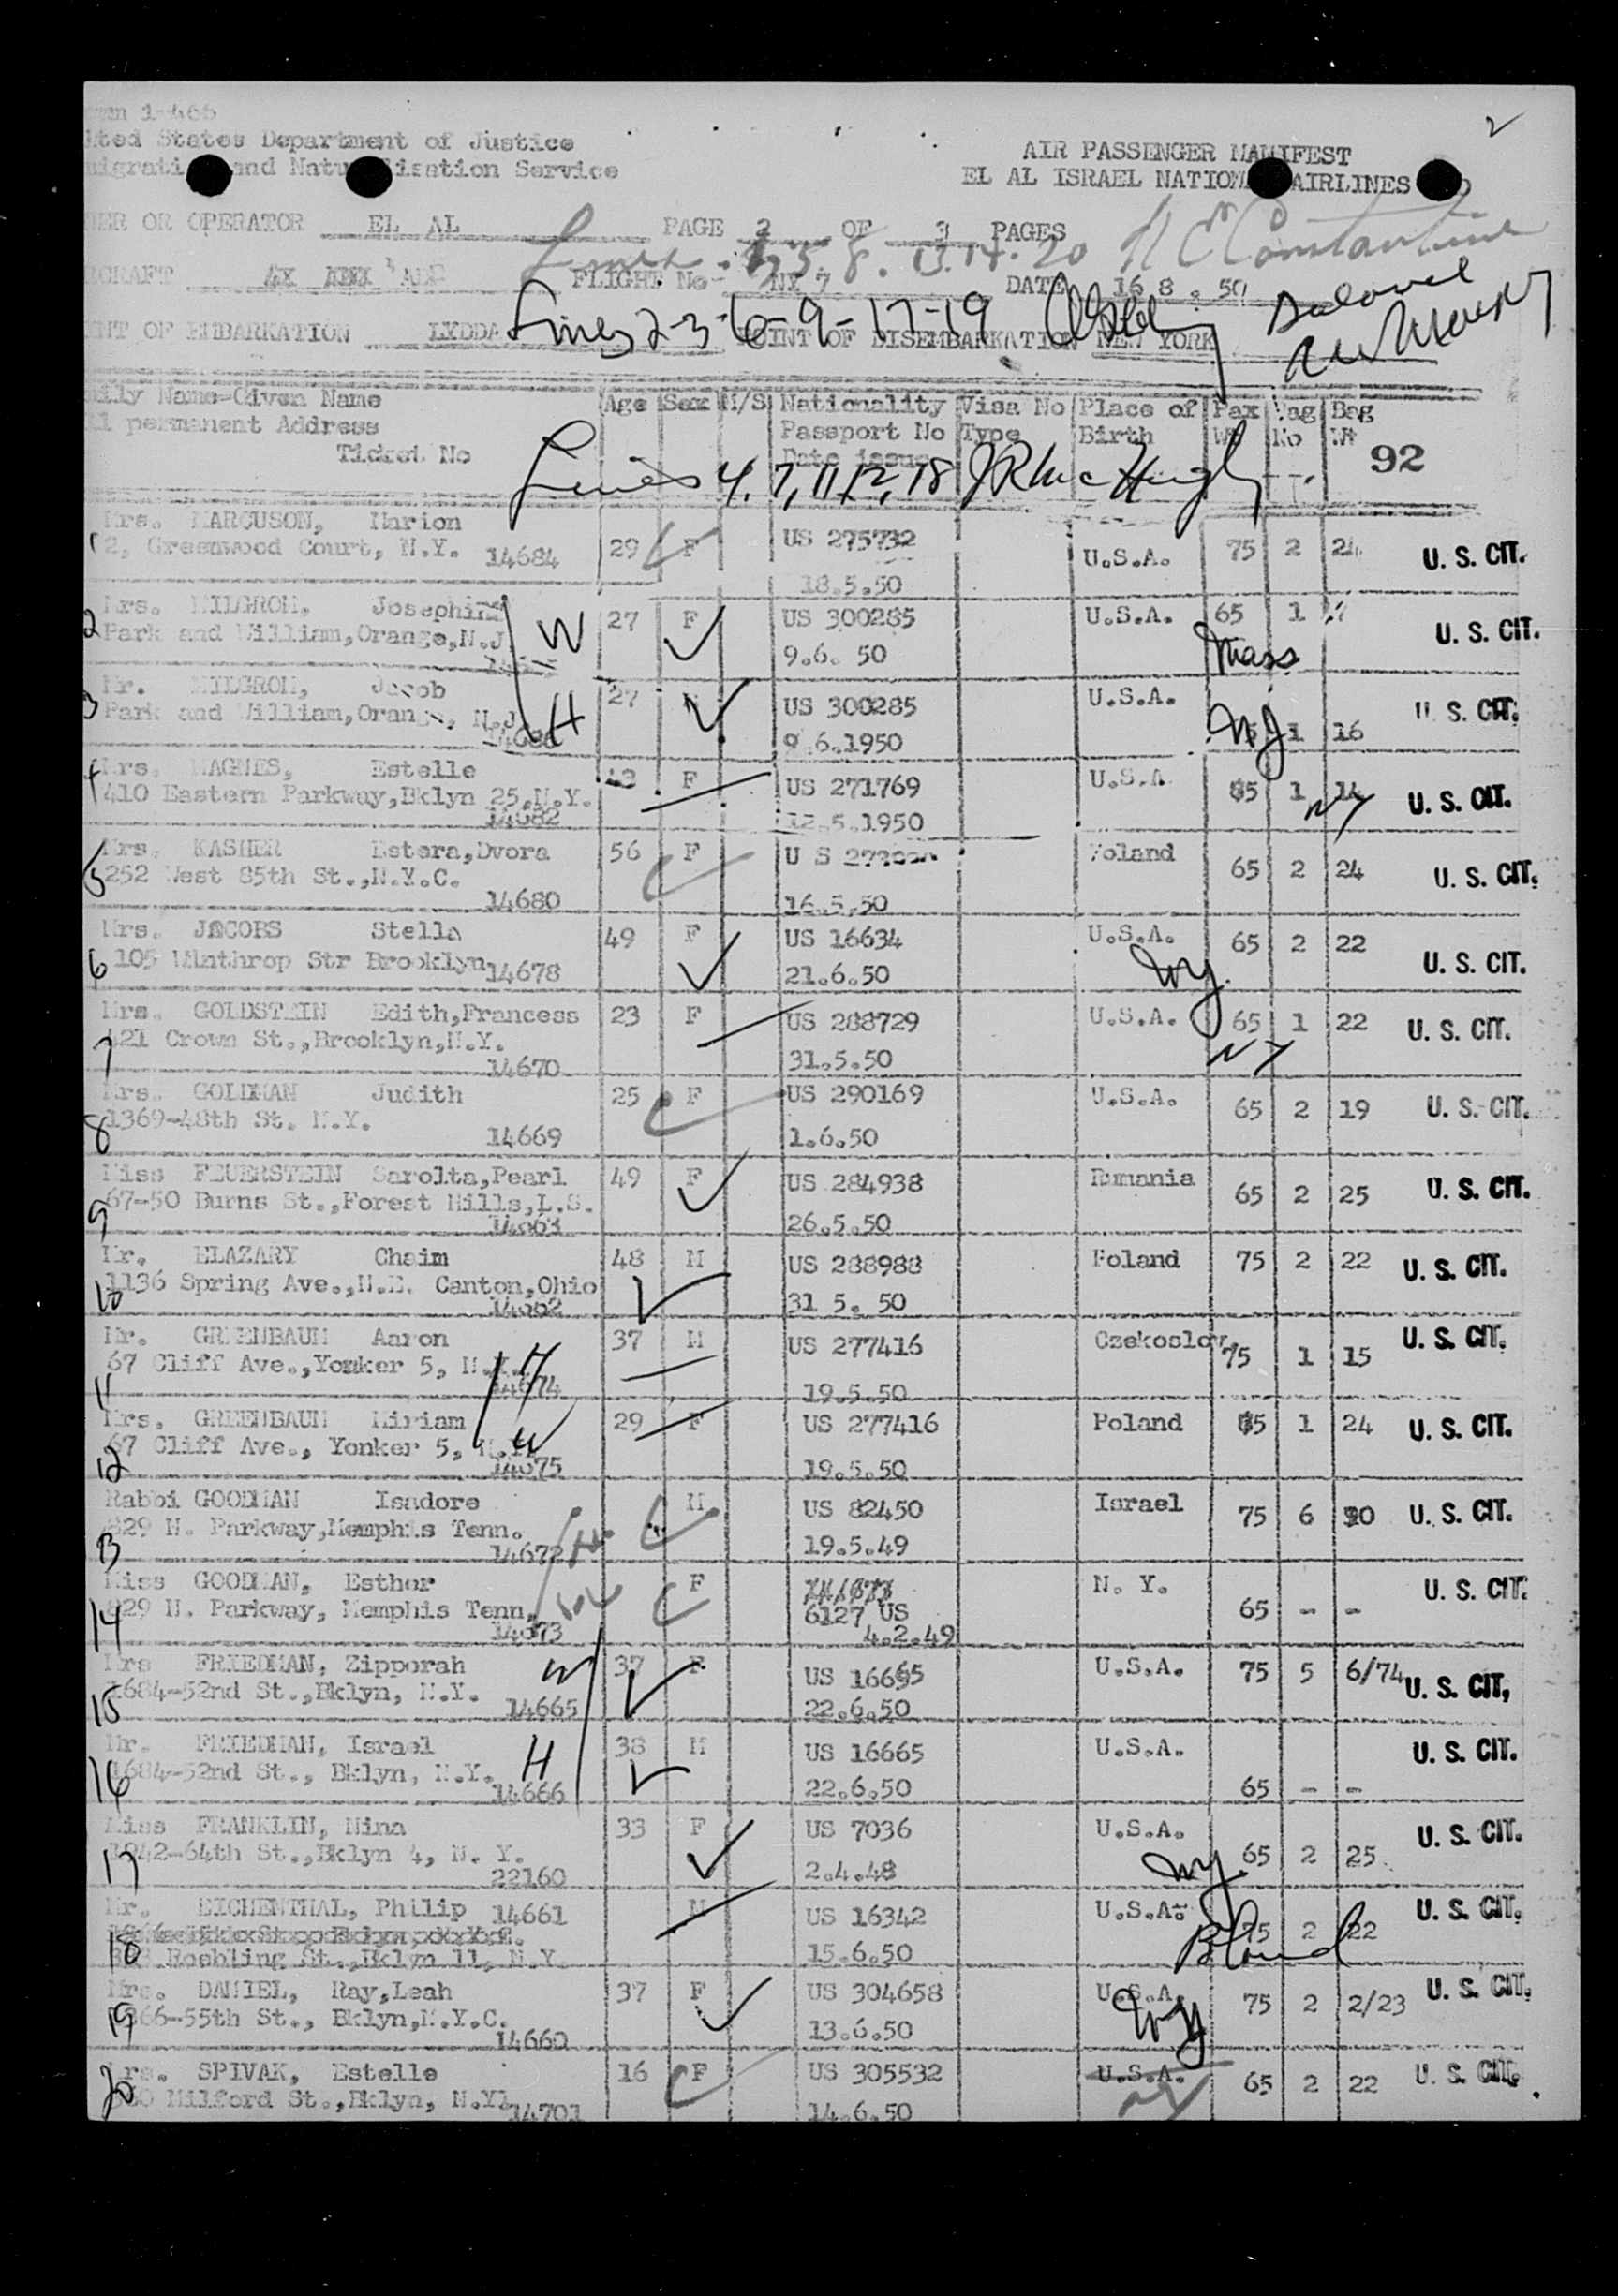 2
1-466
ited States Department of Justice
AIR PASSENGER MANIFEST
and Natu isation Service
EL AL ISRAEL NATION AIRLINES
OR OPERATOR EL AL PAGE 2 OF 3 PAGES
8. 13.14.20 Constantine
FLIGHT No NY 7 DATE 16 8. 50
Lines 2-3-6-9-17-19
NT OF EMBARKATION LYDDA POINT OF DISEMBARKATION NEW YORK
ily Name-Given Name Age Sex M/S Nationality Visa No Place of Pax Bag Bag
permanent Address Passport No Type Birth Wt No Wt
Ticket No Date issue 92
Lines 4, 7, 11, 12, 18 J R McHugh
1 Mrs. MARCUSON, Marion 29 F US 275732 U.S.A. 75 2 24 U. S. CIT.
2, Greenwood Court, N.Y. 14684
18.5.50
2 Mrs. MILGROM, Josephine W 27 F US 300285 U.S.A. 65 1 U. S. CIT.
Park and William, Orange, N.J
9.6. 50 Mass
3 Mr. MILGROM, Jacob H 27 US 300285 U.S.A. NJ 1 16 U. S. CIT.
Park and William, Orange, N.J.
9.6.1950
4 Mrs. MAGNES, Estelle F US 271769 U.S.A. 1 14 U. S. CIT.
410 Eastern Parkway,Bklyn 25,N.Y. NY
14682 12.5.1950
5 Mrs. KASHER Estera,Dvora 56 F U S Poland 65 2 24 U. S. CIT.
252 West 85th St.,N.Y.C.
14680 16.5.50
6 Mrs. JACOBS Stella 49 F US 16634 U.S.A. 65 2 22 U. S. CIT.
105 Winthrop Str Brooklyn 14678 21.6.50 NY
7 Mrs. GOLDSTEIN Edith,Francess 23 F US 288729 U.S.A. 65 1 22 U. S. CIT.
421 Crown St.,Brooklyn,N.Y. NY
14670 31.5.50
8 Mrs. GOLDMAN Judith 25 F US 290169 U.S.A. 65 2 19 U. S. CIT.
1369-48th St. N.Y.
14669 1.6.50
9 Miss FEUERSTEIN Sarolta,Pearl 49 F US 284938 Rumania 65 2 25 U. S. CIT.
67-50 Burns St.,Forest Hills,L.S.
14663 26.5.50
10 Mr. ELAZARY Chaim 48 M US 288988 Poland 75 2 22 U. S. CIT.
1136 Spring Ave.,N.E. Canton,Ohio
14662 31 5. 50
11 Mr. GREENBAUM Aaron H 37 M US 277416 Czekoslov. 75 1 15 U. S. CIT.
67 Cliff Ave.,Yonker 5, N.Y.
14674 19.5.50
12 Mrs. GREENBAUM Miriam W 29 F US 277416 Poland 65 1 24 U. S. CIT.
67 Cliff Ave., Yonker 5, N.Y.
14675 19.5.50
13 Rabbi GOODMAN Isadore M US 82450 Israel 75 6 U. S. CIT.
829 N. Parkway,Memphis Tenn.
14672 19.5.49
14 Miss GOODMAN, Esther F N. Y. 65 - - U. S. CIT.
829 N. Parkway, Memphis Tenn. 6127 US
14673 4.2.49
15 Mrs FRIEDMAN, Zipporah W 37 F US 16665 U.S.A. 75 5 6/74 U. S. CIT,
1684-52nd St.,Bklyn, N.Y. 14665 22.6.50
16 Mr. FRIEDMAN, Israel H 38 M US 16665 U.S.A. U. S. CIT.
1684-52nd St., Bklyn, N.Y. 14666 22.6.50 65 - -
17 Miss FRANKLIN, Nina 33 F US 7036 U.S.A. 65 2 25 U. S. CIT.
1942-64th St.,Bklyn 4, N. Y. NY
22160 2.4.48
18 Mr. EICHENTHAL, Philip 14661 M US 16342 U.S.A. 75 2 22 U. S. CIT.
Poland
Roebling St.,Bklyn 11, N.Y. 15.6.50
19 Mrs. DANIEL, Ray,Leah 37 F US 304658 U.S.A. 75 2 2/23 U. S. CIT.
1366-55th St., Bklyn,N.Y.C. NY
14660 13.6.50
20 Mrs. SPIVAK, Estelle 16 F US 305532 U.S.A. 65 2 22 U. S. CIT.
Milford St.,Bklyn, N.Y. NY
14701 14.6.50